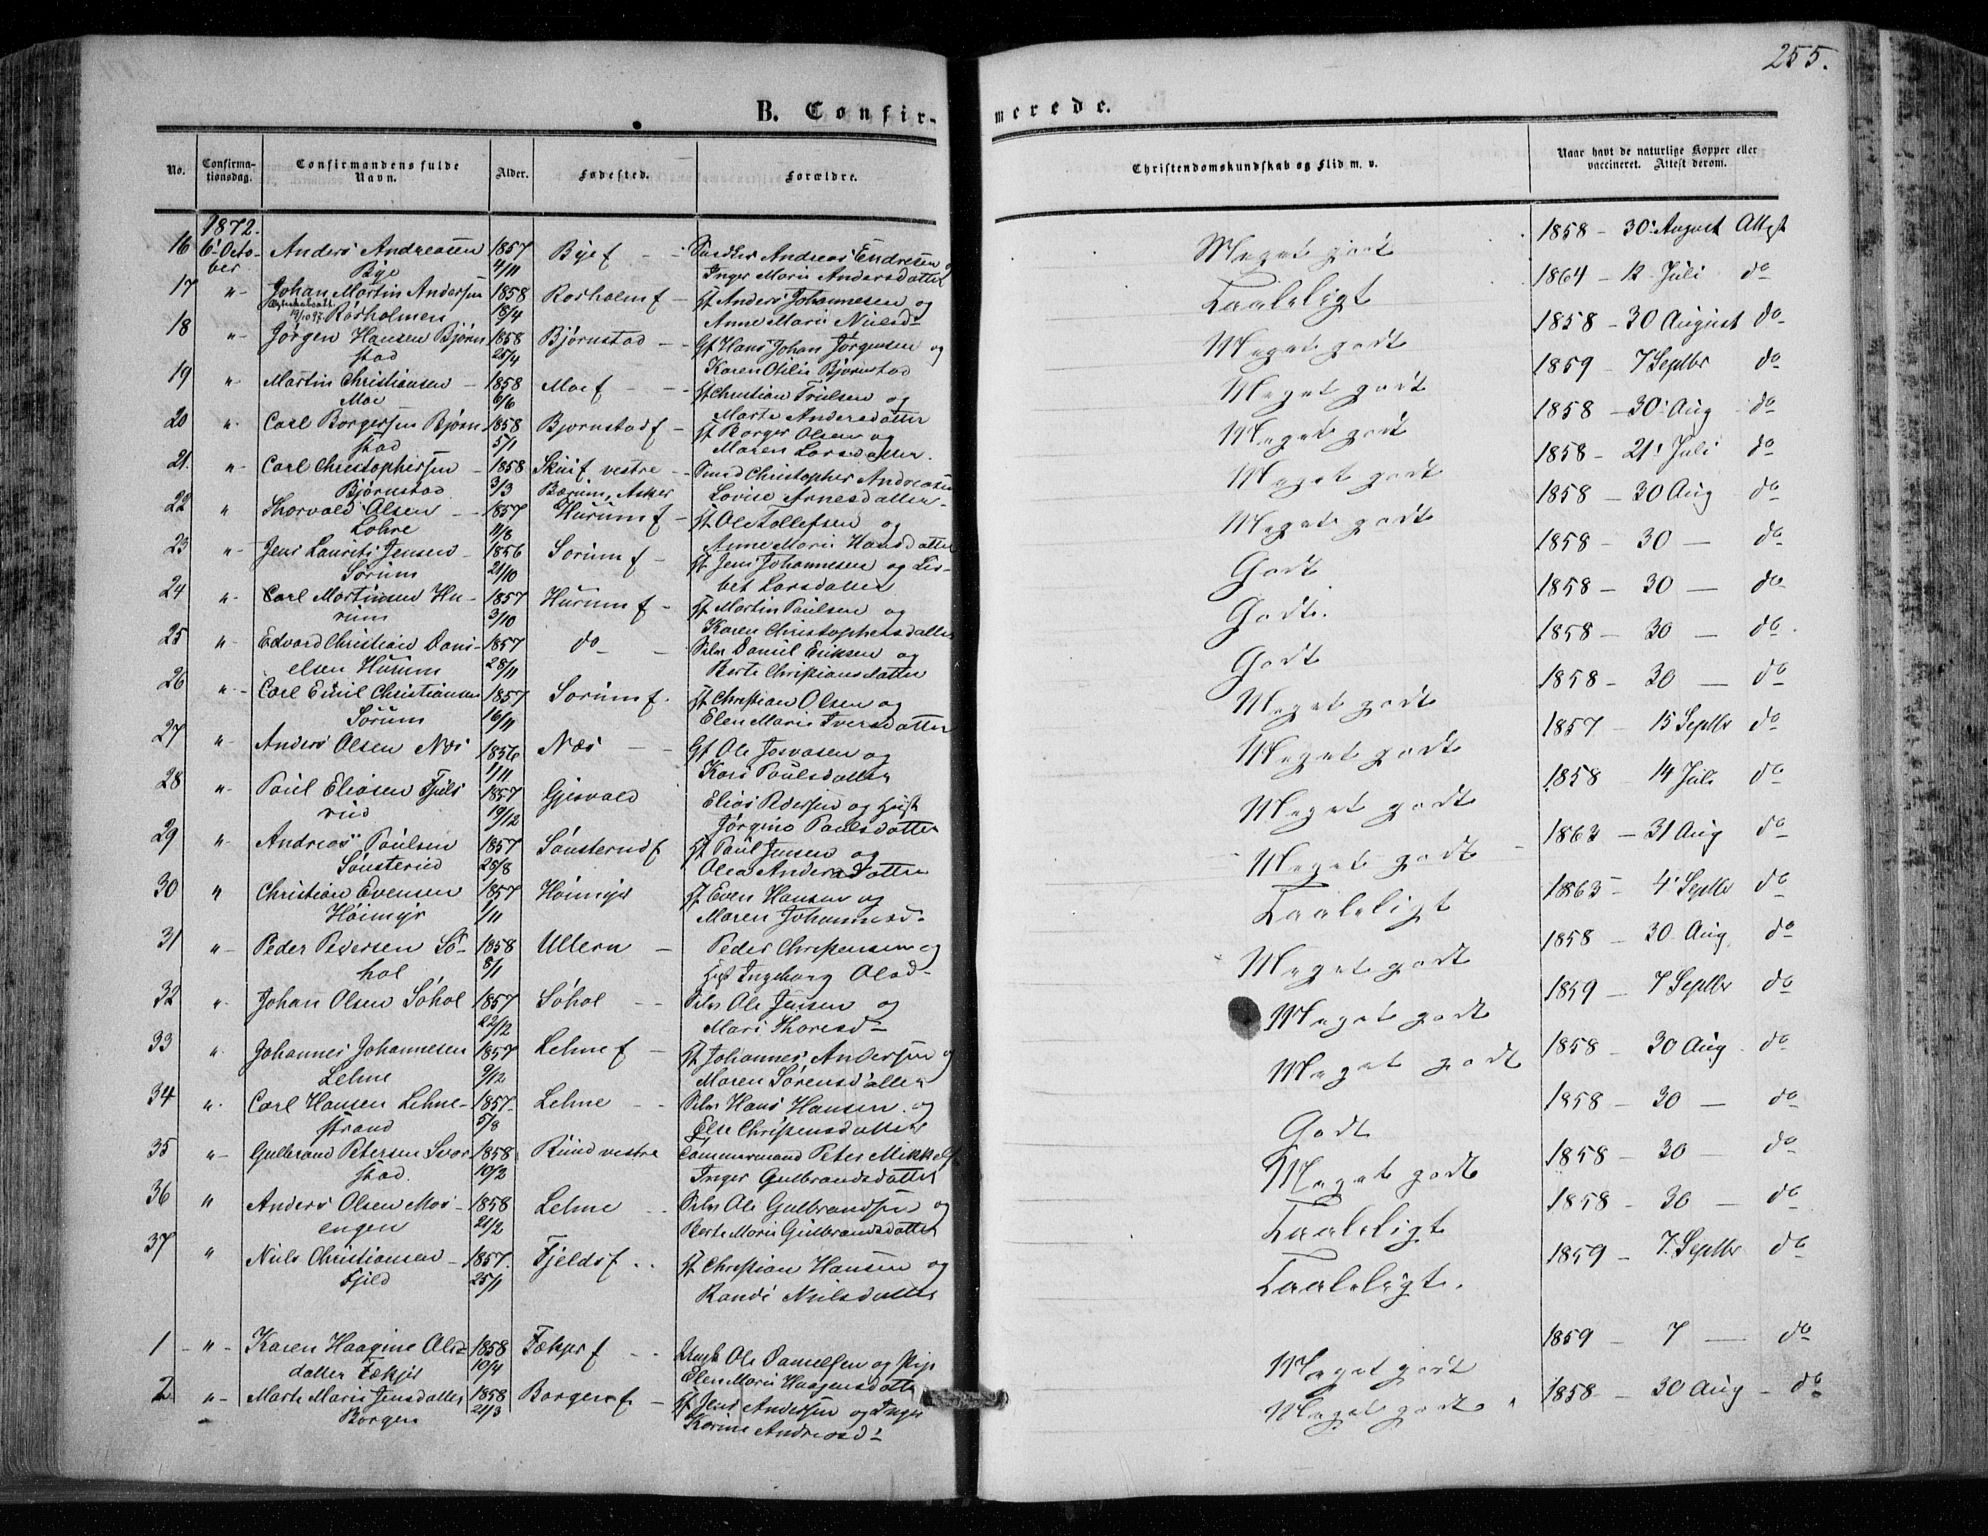 255.
B. Confir-
merede.
No.
Confirma-
tionsdag.
Confirmandens fulde
Navn.
Alder.
Fødested.
Forældre.
Christendomskundskab og Flid m. v.
Naar havt de naturlige Kopper eller
vaccineret. Attest derom.
1872.
16 6' Octo- Anders Andreasen 1857 Bye f Andreas Endresen Meget godt 1858 - 30' August Attest
ber Bye 4/11 Inger Marie Andersdatter
17 " Johan Martin Andersen 1858 Rørholm f ft Anders Johannesen og Taaleligt 1864 - 12 Juli do
Rørholmen 18/4 Anne Marie Nielsd
18 " Jørgen Hansen Bjørn 1858 Bjørnstad Gf Hans Johan Jørgensen og Meget godt 1858 - 30 August do
stad 25/4 Karen Otilie Bjørnstad
19 " Martin Christiansen 1858 Moe f ft Christian Trulsen og Meget godt 1859 7 Septbr do
Moe 6/6 Marte Andersdatter
20 " Carl Borgersen Bjørn 1858 Bjørnstad f ft Borger Olsen og Meget godt 1858 - 30' Aug do
stad 5/1 Maren Larsdatter.
21. " Carl Christophersen 1858 Skui f vestre Smed Christopher Andreasen Meget godt 1858 - 21' Juli do
Bjørnstad 3/3 Bærum, Asker Lovise Arnesdatter
22 " Thorvald Olsen 1857 Hurum f ft Ole Tollefsen og Meget godt 1858 - 30 Aug do
Lohre 11/8 Anne Marie Hansdatter
23 " Jens Laurits Jensen 1856 Sørum f ft Jens Johannesen og Lis- Godt 1858 - 30 — do
Sørum 21/10 bet Larsdatter
24 " Carl Martinsen Hu- 1857 Hurum f ft Martin Paulsen og Godt. 1858 - 30 — do
rum 3/10 Karen Christophersdatter
25 " Edvard Christian Dani- 1857 do Daniel Eriksen og Godt 1858 - 30 — do
elsen Hurum 28/11 Berte Christiansdatter
26 " Carl Emil Christiansen 1857 Sørum f. ft Christian Olsen og Meget godt 1858 - 30 — do
Sørum 16/11 Elen Marie Iversdatter
27 " Anders Olsen Næs 1856 Næs Gf Ole Josvasen og Meget godt 1857 - 15 Septbr do
1/11 Kari Paulsdatter
28 " Paul Eliasen Fjuls 1857 Gjesvald Elias Pedersen og Meget godt 1858 - 14 Juli do
rud 19/12 Jørgine Paulsdatter
29 " Andreas Paulsen 1857 Sønsterud f ft Paul Jensen og Meget godt 1863 - 31 Aug do
Sønsterud 28/8 Olea Andersdatter
30 " Christian Evensen 1857 Høimyr ft Even Hansen og Taaleligt 1863 - 4' Septbr do
Høimyr 1/11 Maren Johannesd.
31 " Peder Pedersen Sø- 1858 Ullern Peder Christensen og Meget godt 1858 - 30 Aug do
hol 8/1 Ingeborg Olsd
32 " Johan Olsen Søhol 1857 Søhol Ole Jensen og Meget godt 1859 - 7 Septbr do
22/12 Mari Thoresd
33 " Johannes Johannesen 1857 Lehne f ft Johannes Andersen og Meget godt 1858 - 30 Aug do
Lehne 9/12 Maren Sørensdatter
34 " Carl Hansen Lehne- 1857 Lehne Hans Hansen og Godt 1858 - 30 — do
strand 5/8 Else Christensdatter
35 " Gulbrand Petersen Svar 1858 Ruud vestre Tømmermand Peter Mikkels Meget godt 1858 - 30 — do
stad. 10/2 Inger Gulbrandsdatter
36 " Anders Olsen Mos- 1858 Lehne Ole Gulbrandsen og Taaleligt 1858 - 30 — do
engen 21/2 Berte Marie Gulbrandsdatter
37 " Niels Christiansen 1857. Fjelds f ft Christian Hansen og Taaleligt. 1859 - 7. Septbr do
Fjeld 25/1 Randi Nielsdatter
1 " Karen Haagine Ols- 1858 Fækjer f Ole Danielsen og Meget godt 1859 - 7 — do
datter Fækjer 10/4 Elen Marie Haagensdatter
2 " Marte Marie Jensdatter 1858 Borgen f ft Jens Andersen og Inger Meget godt 1858 - 30 Aug - do
Borgen 21/3 Karine Andreasd